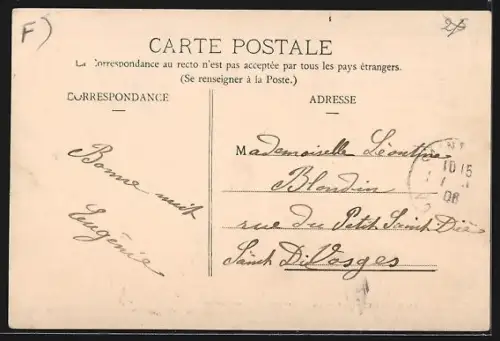 F)
CARTE POSTALE
La Correspondance au recto n'est pas acceptée par tous les pays étrangers.
(Se renseigner à la Poste.)
CORRESPONDANCE
ADRESSE
Bonne nuit
Eugènie
Mademoiselle Léontine
Blondin
rue du Petit Saint Dié
Saint Di Vosges
10 15
08